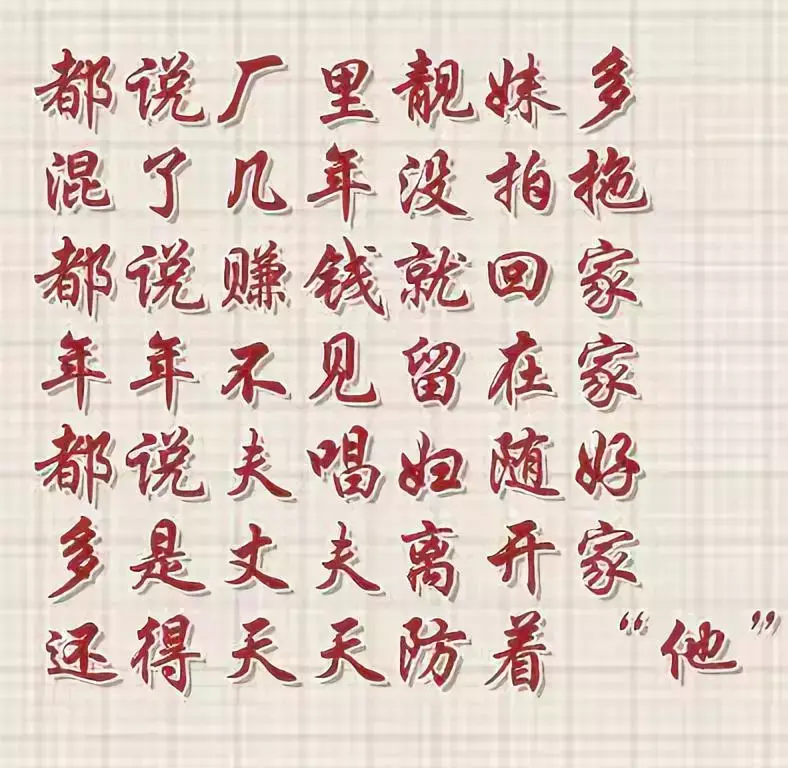 都说厂里靓妹多
混了几年没拍拖
都说赚钱就回家
年年不见留在家
都说夫唱妇随好
多是丈夫离开家
还得天天防着“他”